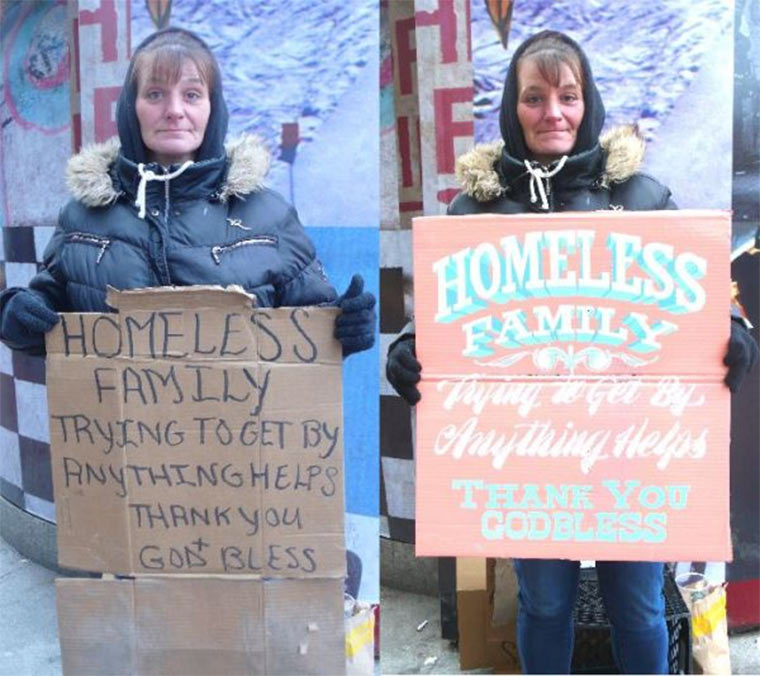 HOMELESS
FAMILY
TRYING TO GET BY
ANYTHING HELPS
THANK YOU
GOD BLESS
HOMELESS
FAMILY
Trying to Get By
Anything Helps
THANK YOU
GODBLESS